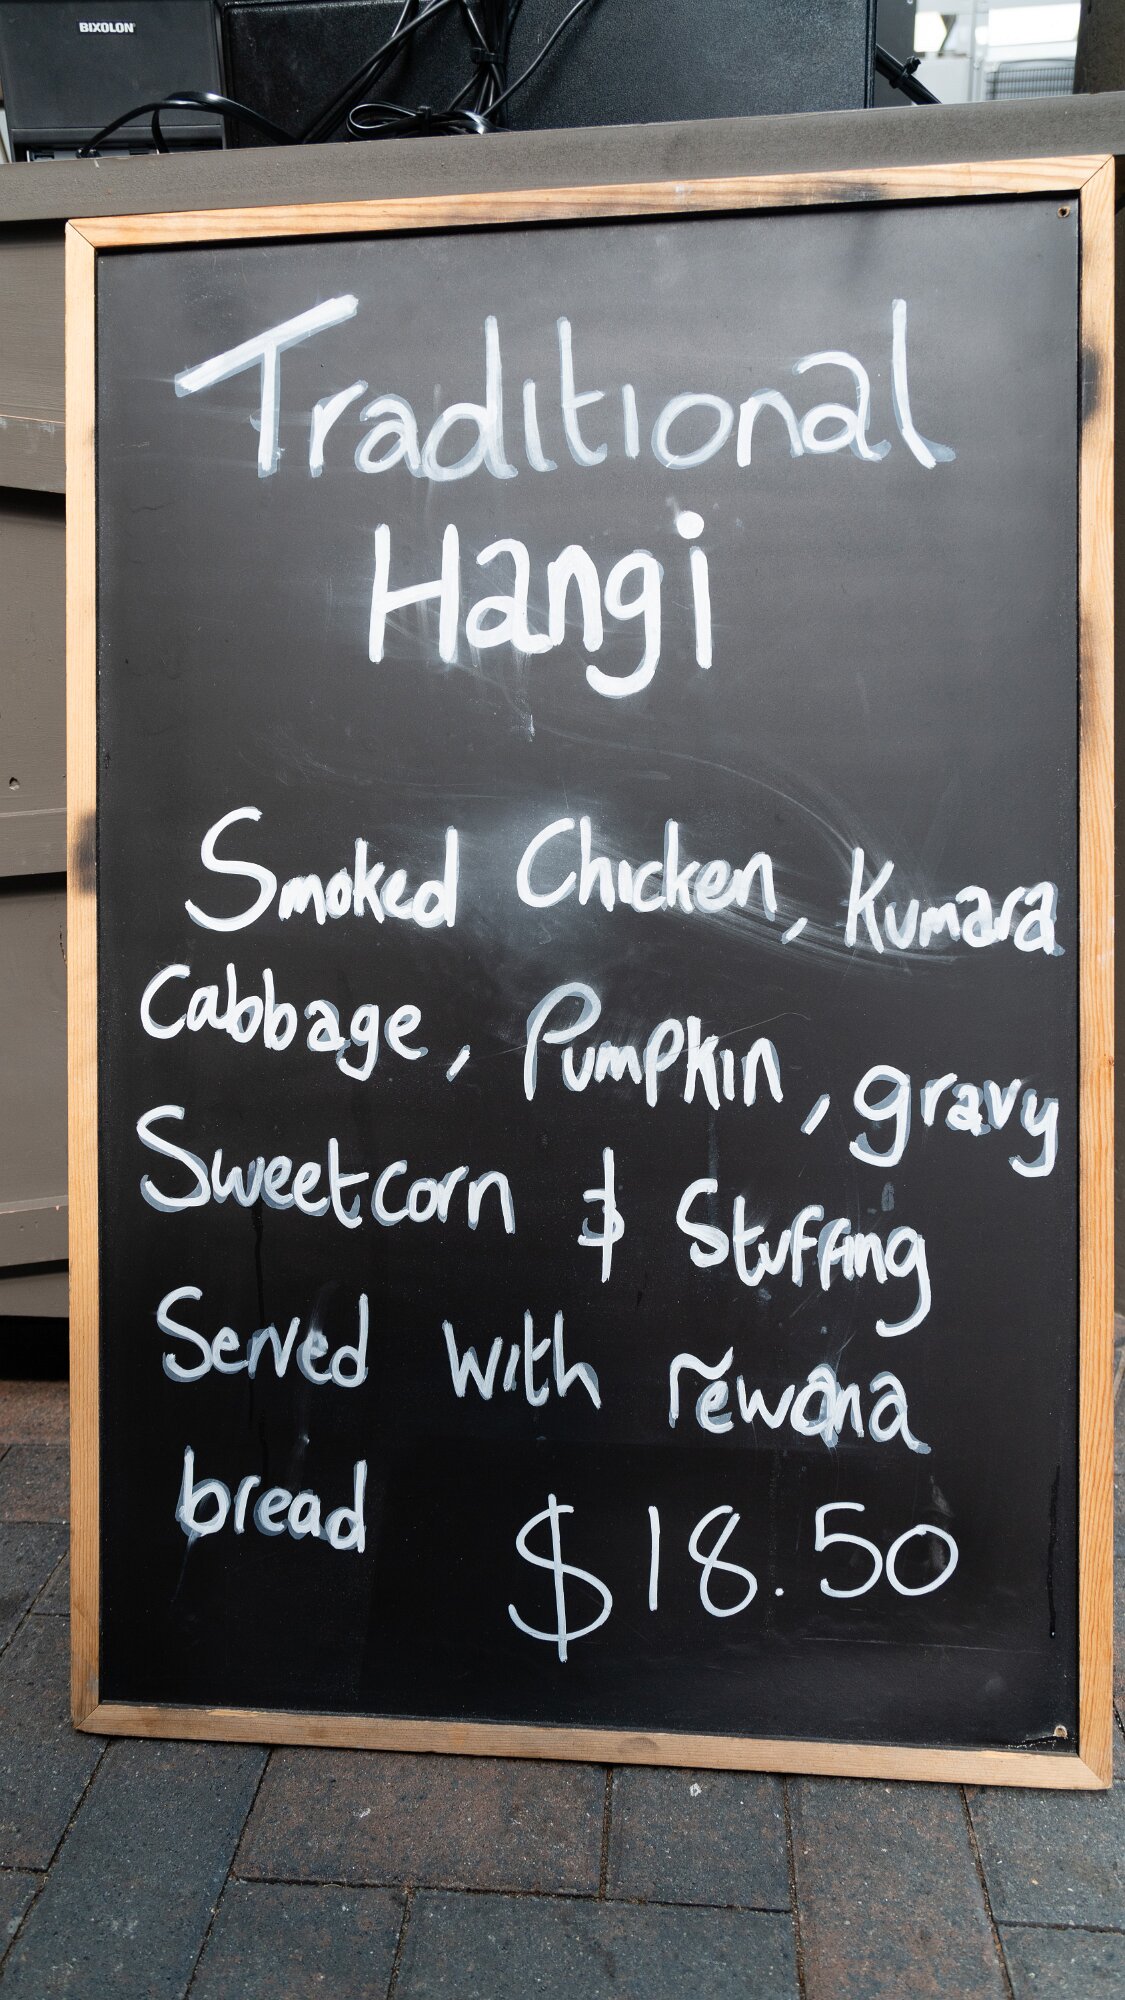 BIXOLON
Traditional
Hangi
Smoked Chicken, Kumara
Cabbage, Pumpkin, gravy
Sweetcorn & Stuffing
Served with rēwana
bread $18.50